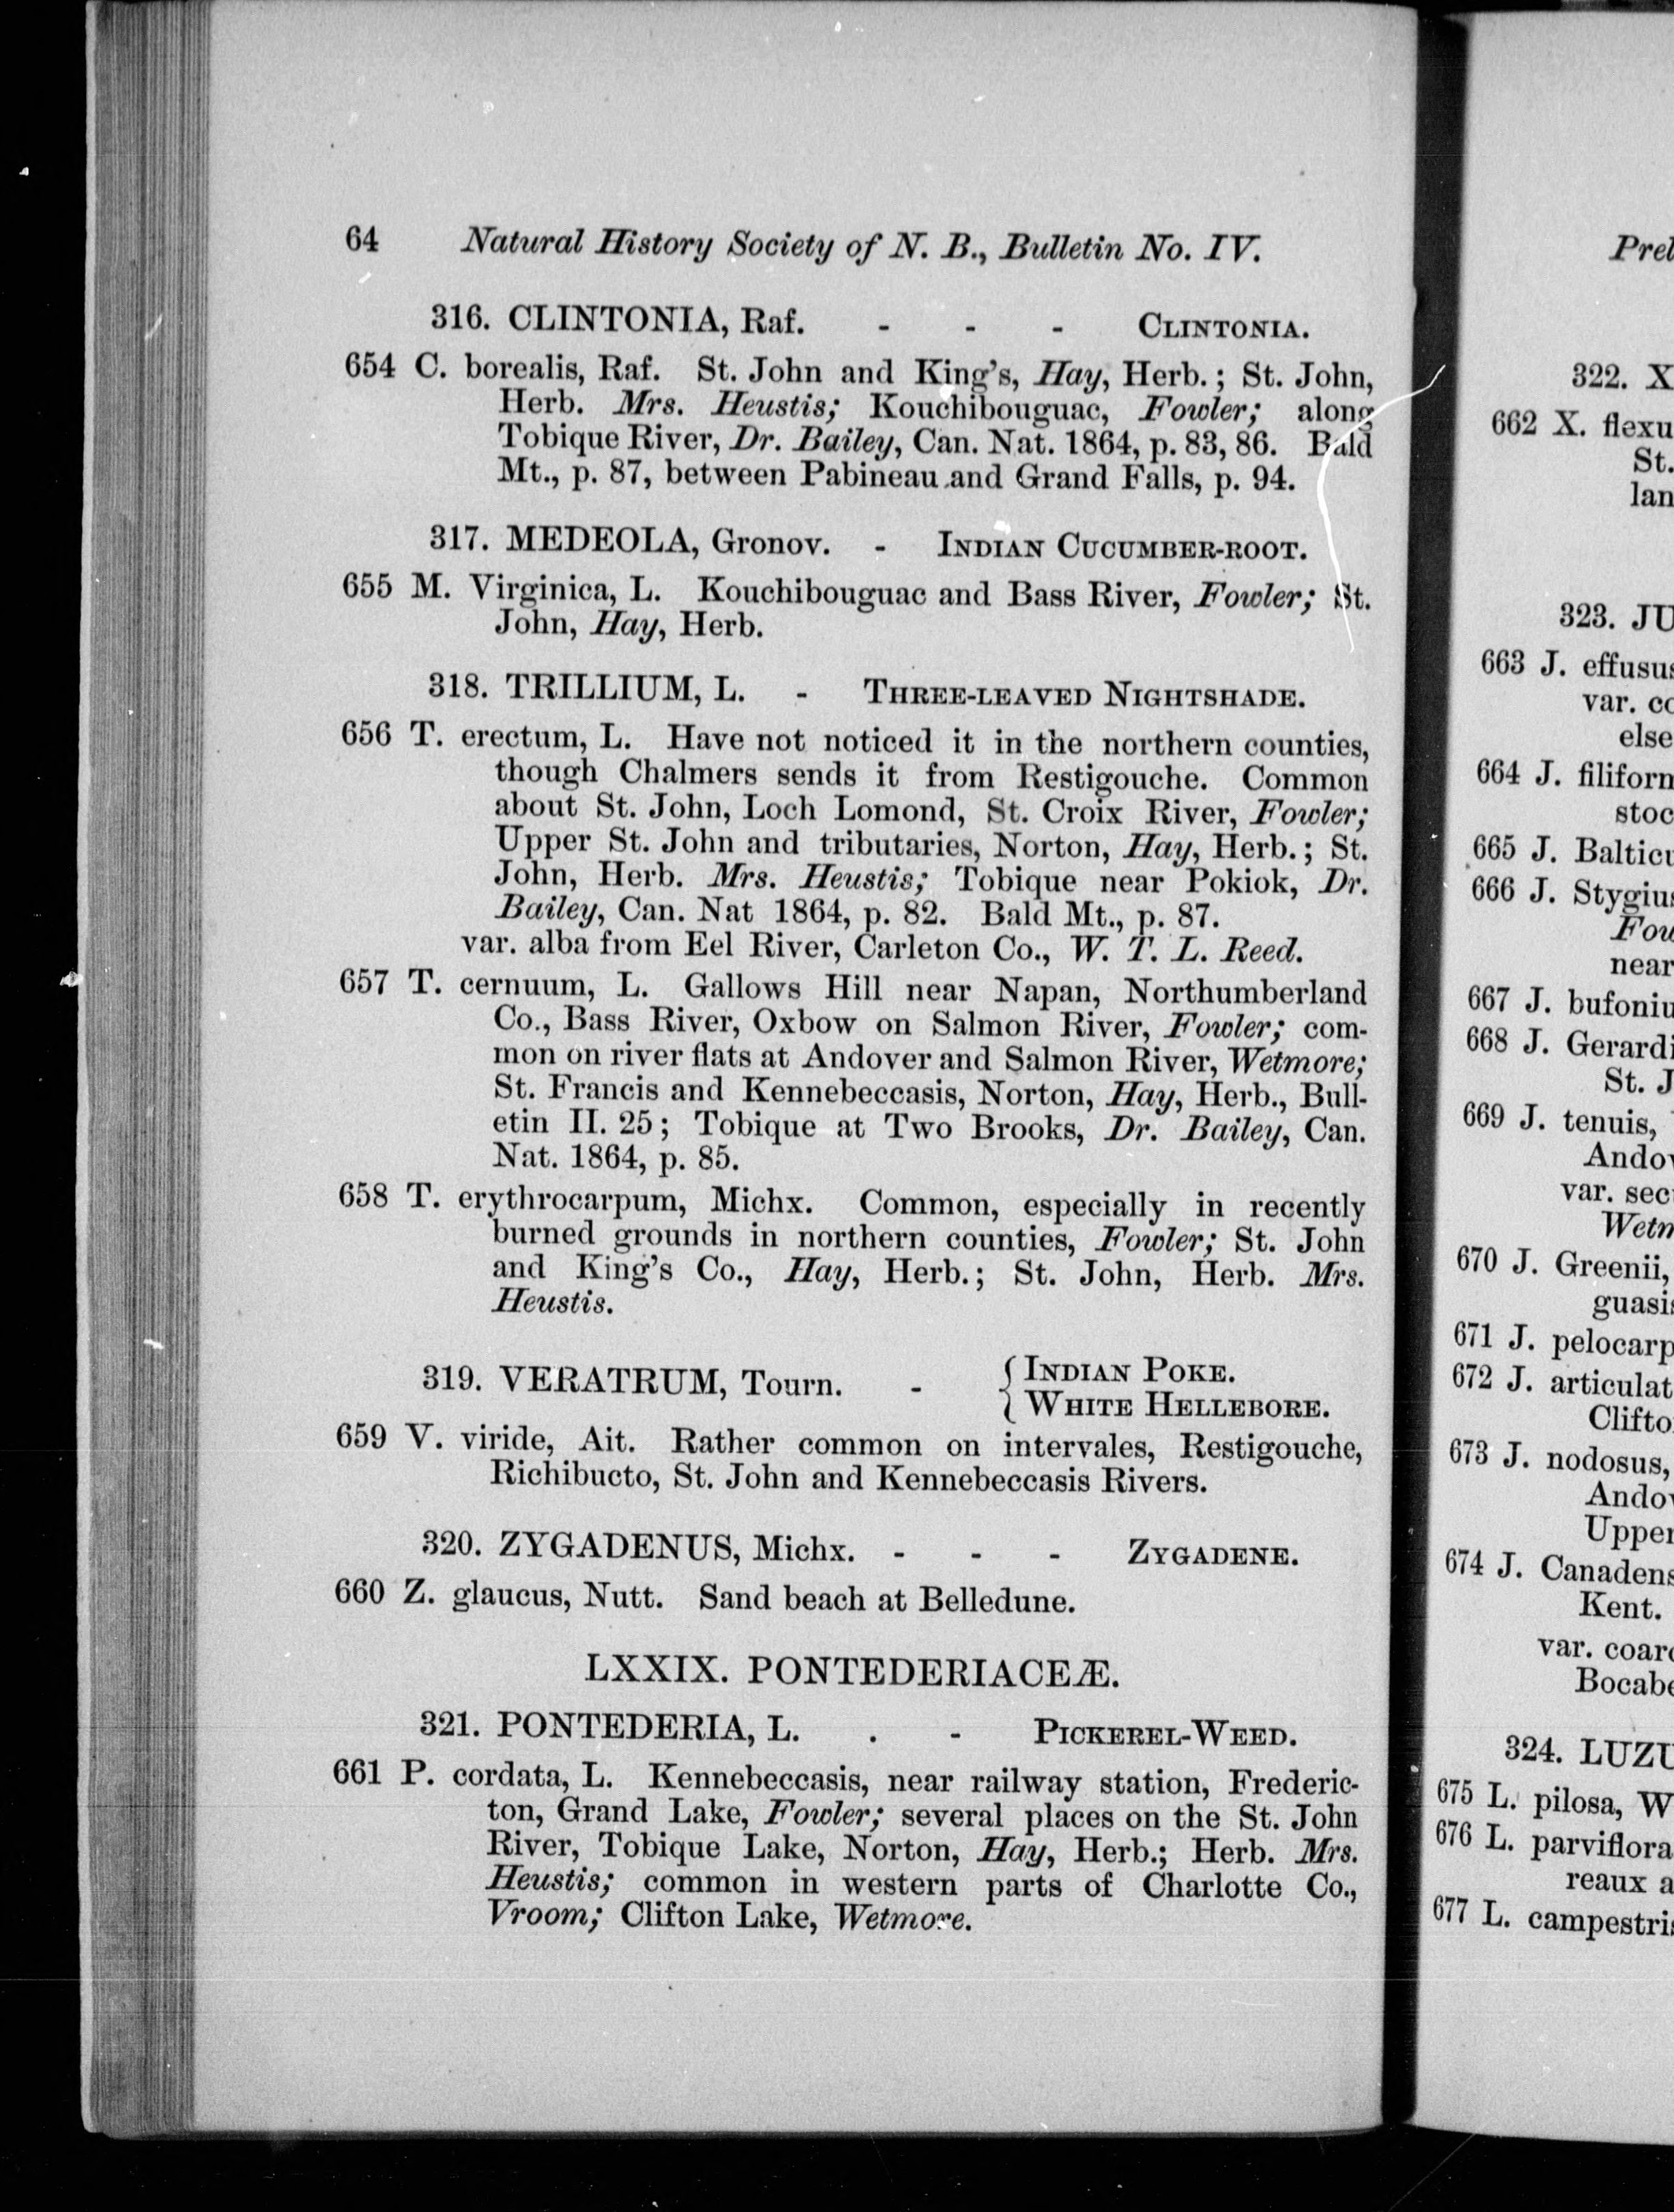 64 Natural History Society of N. B., Bulletin No. IV.
316. CLINTONIA, Raf. - - - CLINTONIA.
654 C. borealis, Raf. St. John and King's, Hay, Herb.; St. John,
Herb. Mrs. Heustis; Kouchibouguac, Fowler; along
Tobique River, Dr. Bailey, Can. Nat. 1864, p. 83, 86. Bald
Mt., p. 87, between Pabineau and Grand Falls, p. 94.
317. MEDEOLA, Gronov. - INDIAN CUCUMBER-ROOT.
655 M. Virginica, L. Kouchibouguac and Bass River, Fowler; St.
John, Hay, Herb.
318. TRILLIUM, L. - THREE-LEAVED NIGHTSHADE.
656 T. erectum, L. Have not noticed it in the northern counties,
though Chalmers sends it from Restigouche. Common
about St. John, Loch Lomond, St. Croix River, Fowler;
Upper St. John and tributaries, Norton, Hay, Herb.; St.
John, Herb. Mrs. Heustis; Tobique near Pokiok, Dr.
Bailey, Can. Nat 1864, p. 82. Bald Mt., p. 87.
var. alba from Eel River, Carleton Co., W. T. L. Reed.
657 T. cernuum, L. Gallows Hill near Napan, Northumberland
Co., Bass River, Oxbow on Salmon River, Fowler; com-
mon on river flats at Andover and Salmon River, Wetmore;
St. Francis and Kennebeccasis, Norton, Hay, Herb., Bull-
etin II. 25; Tobique at Two Brooks, Dr. Bailey, Can.
Nat. 1864, p. 85.
658 T. erythrocarpum, Michx. Common, especially in recently
burned grounds in northern counties, Fowler; St. John
and King's Co., Hay, Herb.; St. John, Herb. Mrs.
Heustis.
319. VERATRUM, Tourn. - { INDIAN POKE.
{ WHITE HELLEBORE.
659 V. viride, Ait. Rather common on intervales, Restigouche,
Richibucto, St. John and Kennebeccasis Rivers.
320. ZYGADENUS, Michx. - - - ZYGADENE.
660 Z. glaucus, Nutt. Sand beach at Belledune.
LXXIX. PONTEDERIACEÆ.
321. PONTEDERIA, L. . - PICKEREL-WEED.
661 P. cordata, L. Kennebeccasis, near railway station, Frederic-
ton, Grand Lake, Fowler; several places on the St. John
River, Tobique Lake, Norton, Hay, Herb.; Herb. Mrs.
Heustis; common in western parts of Charlotte Co.,
Vroom; Clifton Lake, Wetmore.
Prel
322. X
662 X. flexu
St.
lan
323. JU
663 J. effusus
var. co
else
664 J. filiforn
stoc
665 J. Balticu
666 J. Stygius
Fow
near
667 J. bufoniu
668 J. Gerardi
St. J
669 J. tenuis,
Andov
var. sec
Wetn
670 J. Greenii,
guasis
671 J. pelocarp
672 J. articulat
Clifto
673 J. nodosus,
Andov
Upper
674 J. Canadens
Kent.
var. coarc
Bocabe
324. LUZU
675 L. pilosa, W
676 L. parviflora
reaux a
677 L. campestris